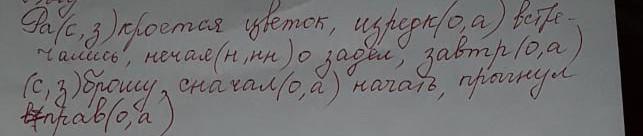 Ра(с,з)кроется цветок, изредк(о,а) встре-
чались, нечая(н,нн)о задел, завтр(о,а)
(с,з)брошу, сначал(о,а) начать, прыгнул
вправ(о,а)